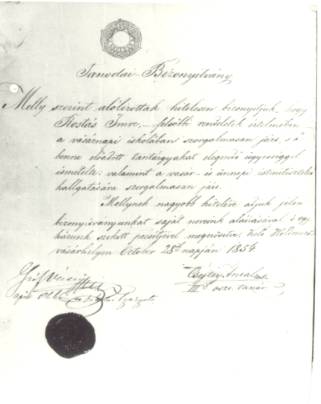 Tanodai Bizonyitvány
Melly szerint alólirottak hitelesen bizonyitjuk, hogy
Rostás Imre felsőbb rendeletek értelmében
a vásárnapi iskolában szorgalmasan járt, s a
benne előadott tantárgyakat elegendő ügyességgel
ismételte; valamint a vasár- és ünnepi istentisztelet
hallgatására szorgalmasan járt.
Mellynek nagyobb hitelére adjuk jelen
bizonyitványunkat saját nevünk aláirásával, s egy-
házunk szokott pecsétjével megerősitve. Kelt
vásárhelyen October 28d napján 1854
Antal
III oszt. tanár